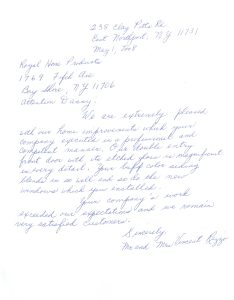 235 Clay Pitts Rd
East Northport, N.Y 11731
May 1, 2008
Royal Home Products
1769 Fifth Ave
Bay Shore, NY 11706
Attention Danny.
We are extremely pleased
with our home improvements which your
company executed in a professional and
competent manner. Our double entry
front door with its etched glass is magnificent
in every detail. Your buff color siding
blends in so well and so do the new
windows which you installed.
Your company's work
exceeded our expectations and we remain
very satisfied customers.
Sincerely,
Mr and Mrs Vincent Rizzo